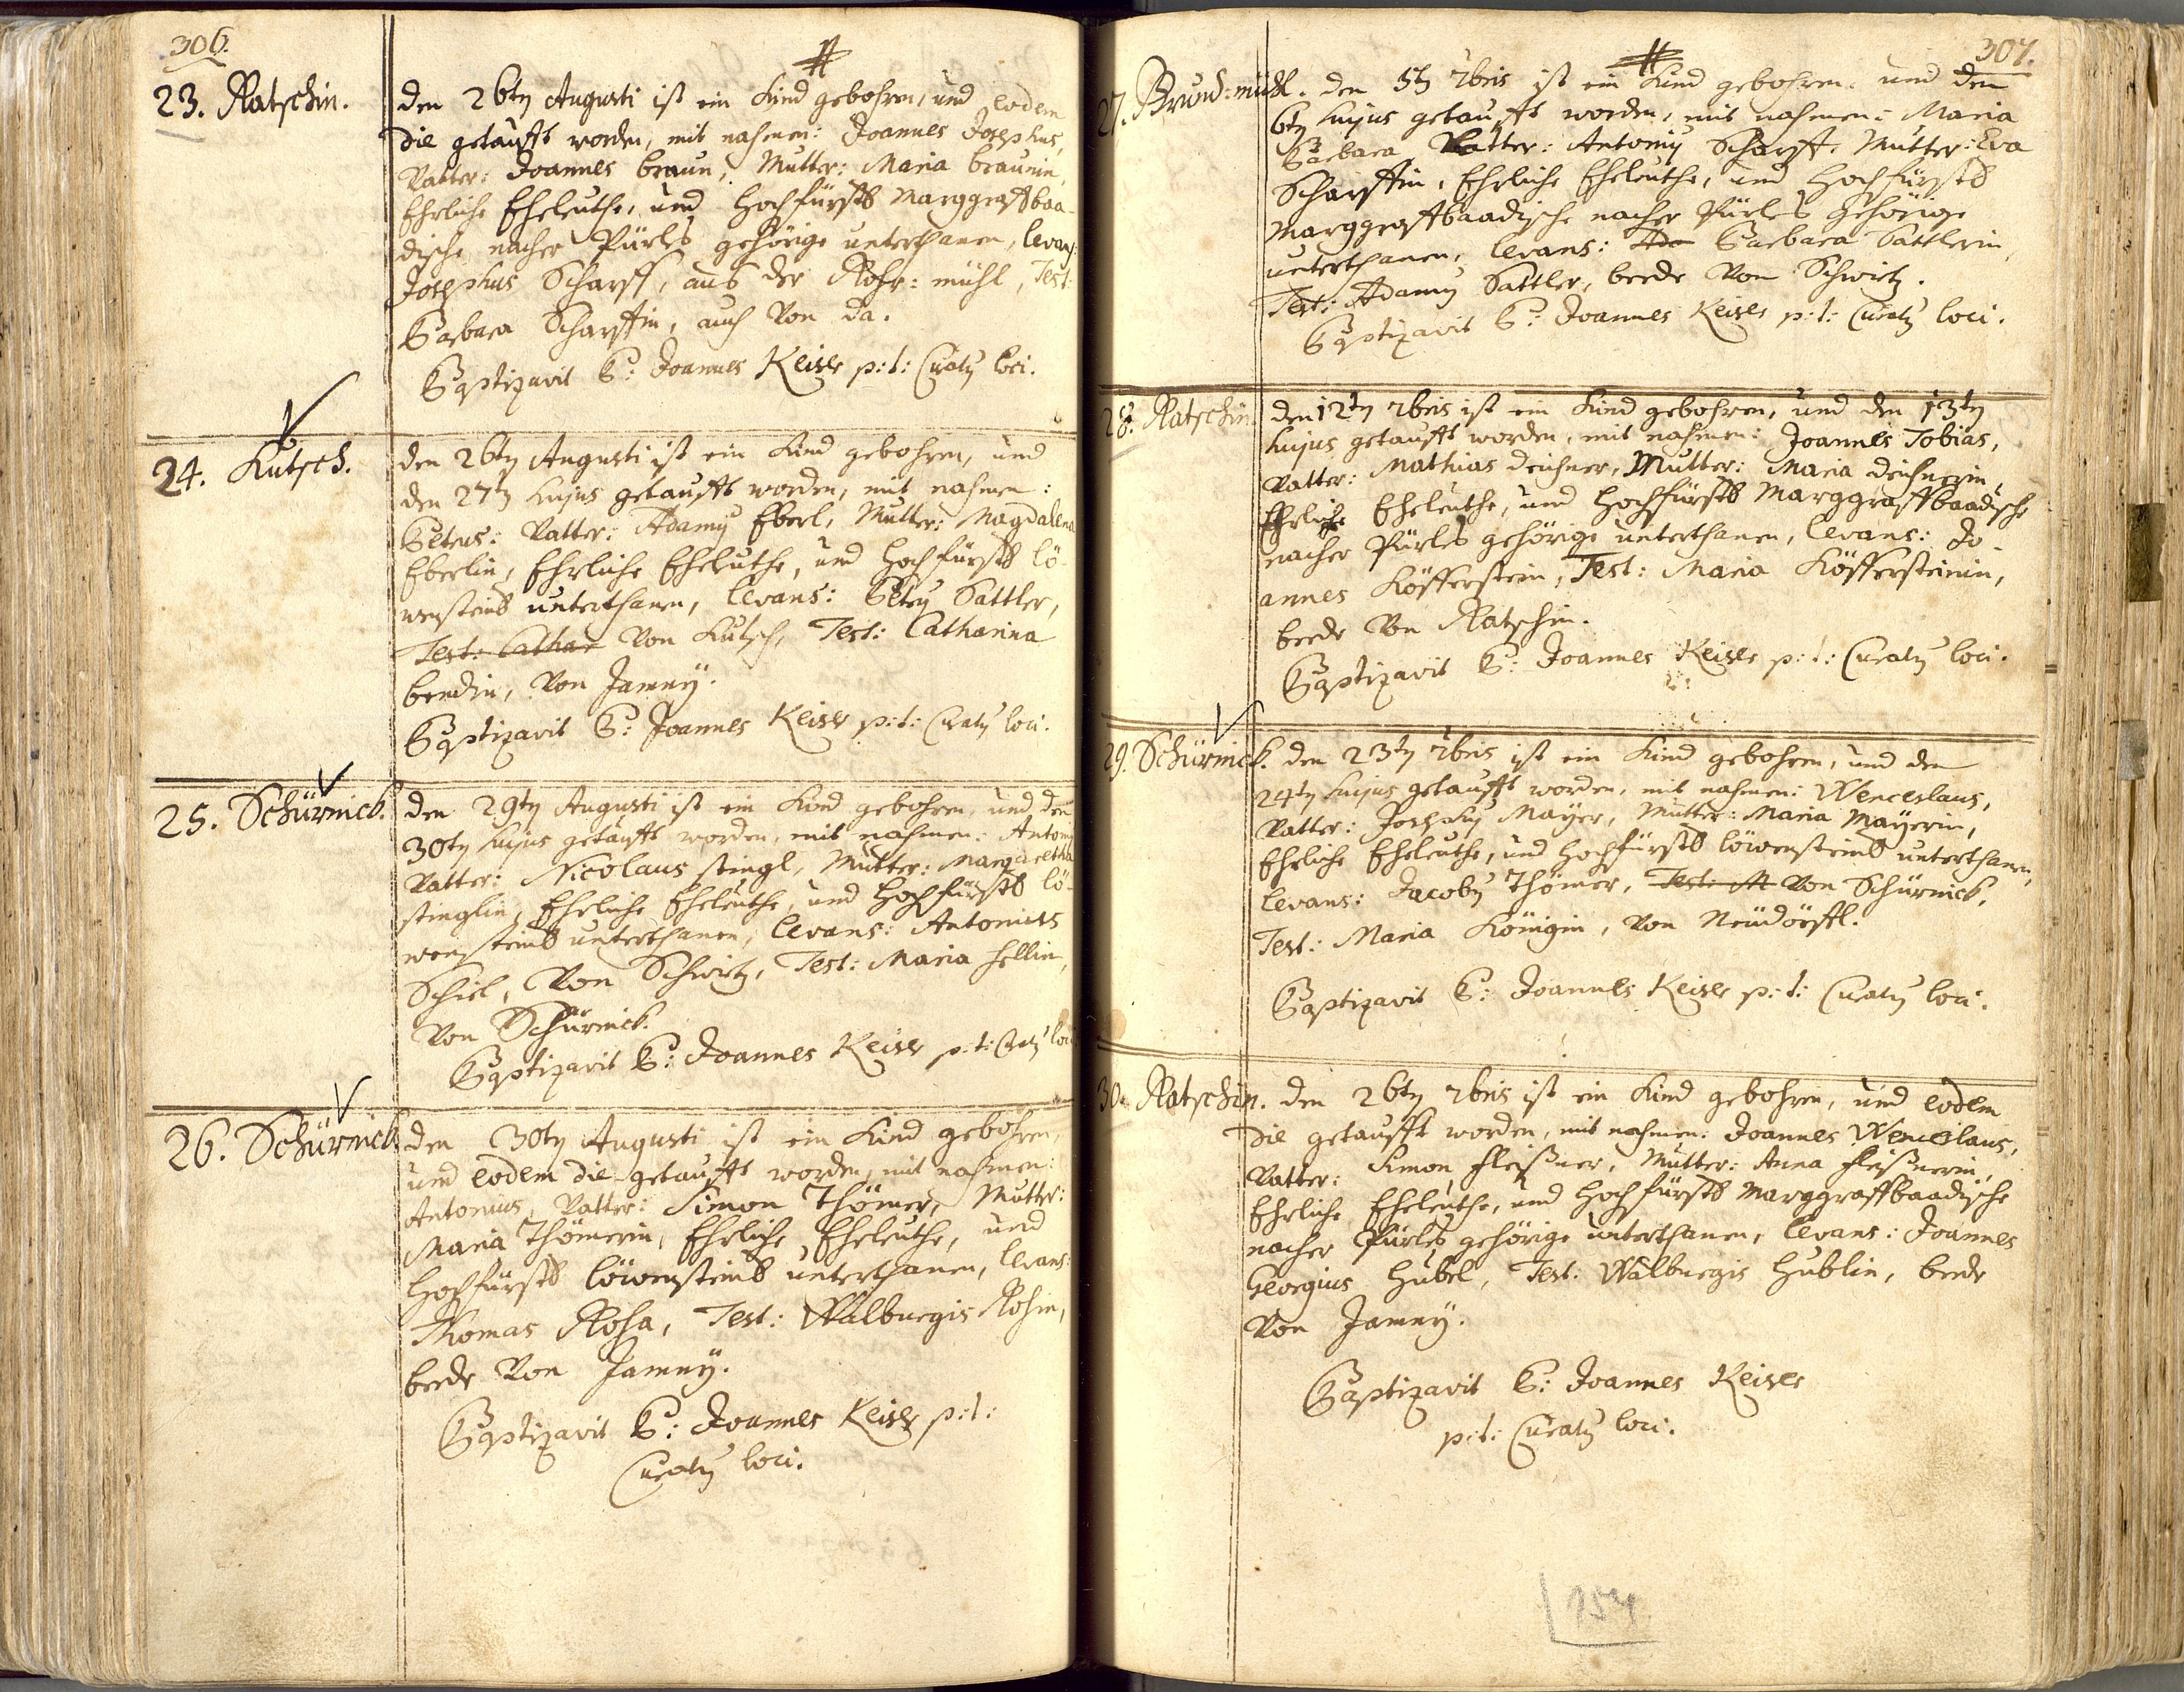 306.
23. Ratschin.
den 26ten Augusti ist ein Kind gebohren, und eodem
die getaufft worden, mit nahmen: Joannes Josephus,
Vatter: Joannes braun, Mutter: Maria braunin,
Ehrliche Eheleuthe, und Hochfürstl Marggraffbaa-
dische nacher Pürles gehörige unterthanen, levans:
Josephus Scharff, aus der Rohr=mühl, Test:
Barbara Scharffin, auch von da.
Baptizavit P: Joannes Keiser p:t: Curatus loci.
24. Kutsch.
den 26ten Augusti ist ein Kind gebohren, und
den 27ten hujus getaufft worden, mit nahmen:
Petrus: Vatter: Adamus Eberl, Mutter: Magdalena
Eberlin, Ehrliche Eheleuthe, und Hochfürstl lö-
wensteinl unterthanen, levans: Petrus Sattler,
Test: Cathar von Kutsch, Test: Catharina
bendin, von Jamny.
Baptizavit P: Joannes Keiser p:t: Curatus loci.
25. Schürnick.
den 29ten Augusti ist ein Kind gebohren, und den
30ten hujus getaufft worden, mit nahmen: Antonius
Vatter: Nicolaus stingl, Mutter: Margaretha
stinglin, Ehrliche Eheleuthe, und Hochfürstl lö-
wensteinl unterthanen, levans: Antonius
Schiel, von Schwirtz, Test: Maria hellin,
von Schürnick.
Baptizavit P: Joannes Keiser p:t: Curatus loci
26. Schürnick.
den 30ten Augusti ist ein Kind gebohren,
und eodem die getaufft worden, mit nahmen:
Antonius, Vatter: Simon Thömer, Mutter:
Maria Thömerin, Ehrliche Eheleuthe, und
Hochfürstl löwensteinl unterthanen, levans:
Thomas Rosa, Test: Walburgis Rosin,
beede von Jamny.
Baptizavit P: Joannes Keiser p:t:
Curatus loci.
307.
27. Brund=mühl.
den 5ten 7bris ist ein Kind gebohren, und den
6ten hujus getaufft worden, mit nahmen: Maria
Barbara Vatter: Antonius Scharff, Mutter: Eva
Scharffin, Ehrliche Eheleuthe, und Hochfürstl
Marggraffbaadische nacher Pürles gehörige
unterthanen, levans: Ada Barbara Sattlerin,
Test: Adamus Sattler, beede von Schwirtz.
Baptizavit P: Joannes Keiser p:t: Curatus loci.
28. Ratschin
den 12ten 7bris ist ein Kind gebohren, und den 13ten
hujus getaufft worden, mit nahmen: Joannes Tobias,
Vatter: Mathias deichner, Mutter: Maria deichnerin,
Ehrliche Eheleuthe, und Hochfürstl Marggraffbaadische
nacher Pürles gehörige unterthanen, levans: Jo-
annes Köfferstein, Test: Maria Köffersteinin,
beede von Ratschin.
Baptizavit P: Joannes Keiser p:t: Curatus loci.
29. Schürnick.
den 23ten 7bris ist ein Kind gebohren, und den
24ten hujus getaufft worden, mit nahmen: Wenceslaus,
Vatter: Josephus Mayer, Mutter: Maria Mayerin,
Ehrliche Eheleuthe, und Hochfürstl löwensteinl unterthanen,
levans: Jacobus Thömer, Test: M von Schürnick,
Test: Maria Königin, von Neüdörffl.
Baptizavit P: Joannes Keiser p:t: Curatus loci.
30. Ratschin.
den 26ten 7bris ist ein Kind gebohren, und eodem
die getaufft worden, mit nahmen: Joannes Wenceslaus,
Vatter: Simon fleißner, Mutter: Anna fleißnerin,
Ehrliche Eheleuthe, und Hochfürstl Marggraffbaadische
nacher Pürles gehörige unterthanen, levans: Joannes
Georgius Hubel, Test: Walburgis Hublin, beede
von Jamny.
Baptizavit P: Joannes Keiser
p:t: Curatus loci.
154